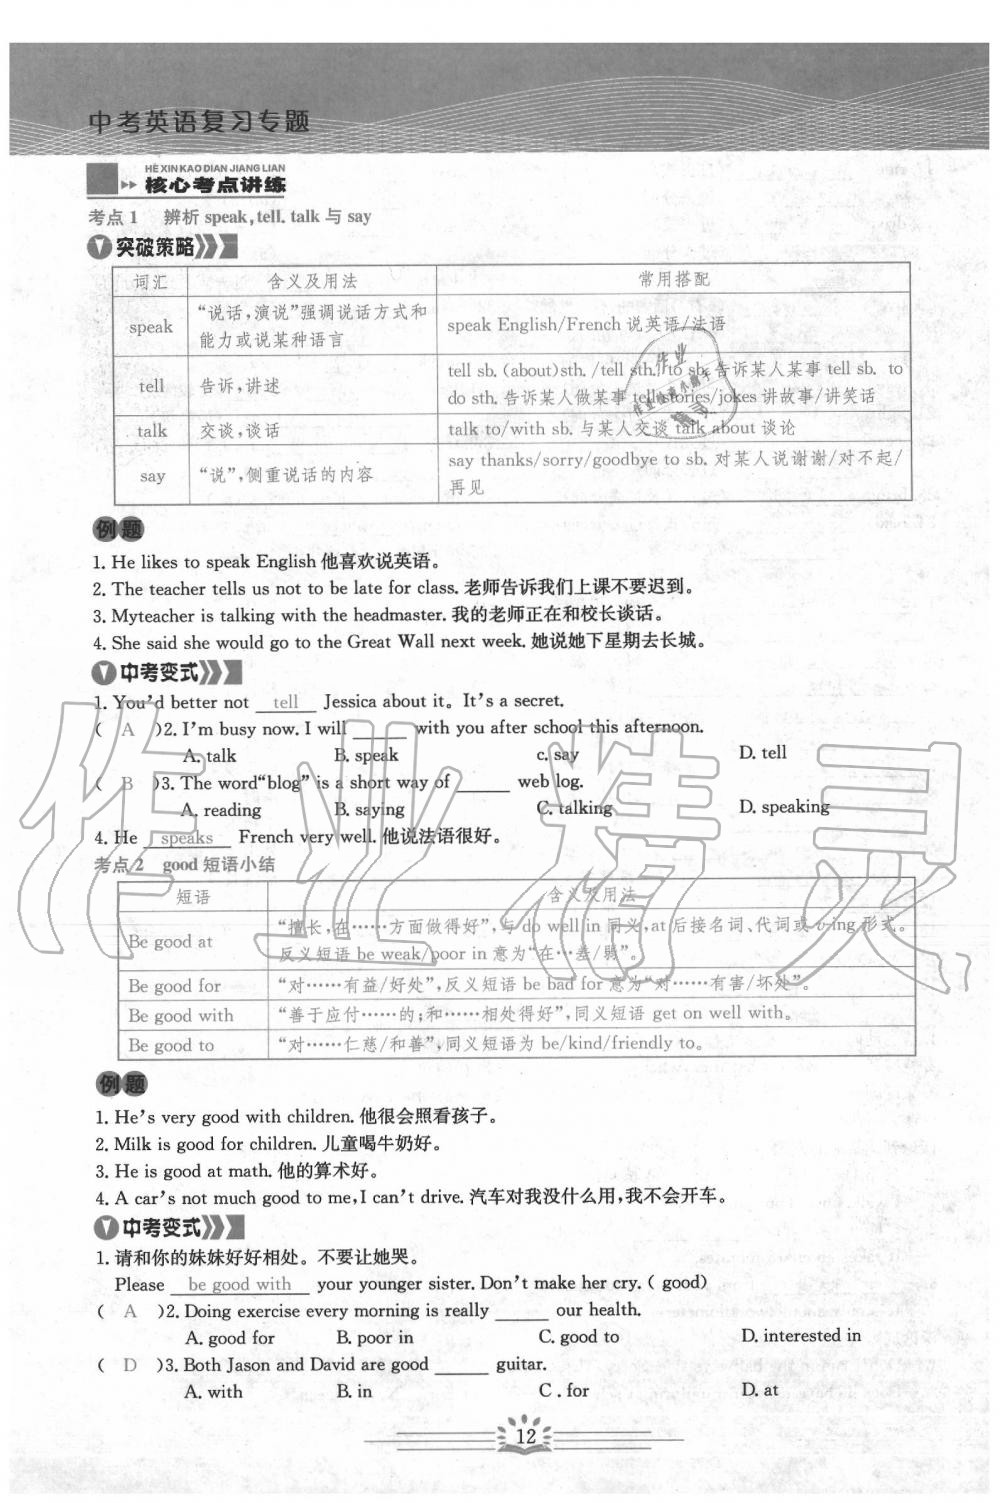 中考英语复习专题
HE XIN KAO DIAN JIANG LIAN
核心考点讲练
考点 1 辨析 speak, tell. talk 与 say
突破策略
词汇 含义及用法 常用搭配
speak “说话,演说”强调说话方式和能力或说某种语言 speak English/French 说英语/法语
tell 告诉,讲述 tell sb. (about)sth. /tell sth. to sb. 告诉某人某事 tell sb. to
do sth. 告诉某人做某事 tell stories/jokes 讲故事/讲笑话
talk 交谈,谈话 talk to/with sb. 与某人交谈 talk about 谈论
say “说”,侧重说话的内容 say thanks/sorry/goodbye to sb. 对某人说谢谢/对不起/
再见
例题
1. He likes to speak English 他喜欢说英语。
2. The teacher tells us not to be late for class. 老师告诉我们上课不要迟到。
3. Myteacher is talking with the headmaster. 我的老师正在和校长谈话。
4. She said she would go to the Great Wall next week. 她说她下星期去长城。
中考变式
1. You'd better not tell Jessica about it. It's a secret.
( A )2. I'm busy now. I will ______ with you after school this afternoon.
A. talk B. speak c. say D. tell
( B )3. The word“blog” is a short way of ______ web log.
A. reading B. saying C. talking D. speaking
4. He speaks French very well. 他说法语很好。
考点 2 good 短语小结
短语 含义及用法
Be good at “擅长,在……方面做得好”,与 do well in 同义,at 后接名词、代词或 v-ing 形式。
反义短语 be weak/poor in 意为“在…差/弱”。
Be good for “对……有益/好处”,反义短语 be bad for 意为“对……有害/坏处”。
Be good with “善于应付……的;和……相处得好”,同义短语 get on well with。
Be good to “对……仁慈/和善”,同义短语为 be/kind/friendly to。
例题
1. He's very good with children. 他很会照看孩子。
2. Milk is good for children. 儿童喝牛奶好。
3. He is good at math. 他的算术好。
4. A car's not much good to me,I can't drive. 汽车对我没什么用,我不会开车。
中考变式
1. 请和你的妹妹好好相处。不要让她哭。
Please be good with your younger sister. Don't make her cry. ( good)
( A )2. Doing exercise every morning is really ______ our health.
A. good for B. poor in C. good to D. interested in
( D )3. Both Jason and David are good ______ guitar.
A. with B. in C . for D. at
12
作业精灵